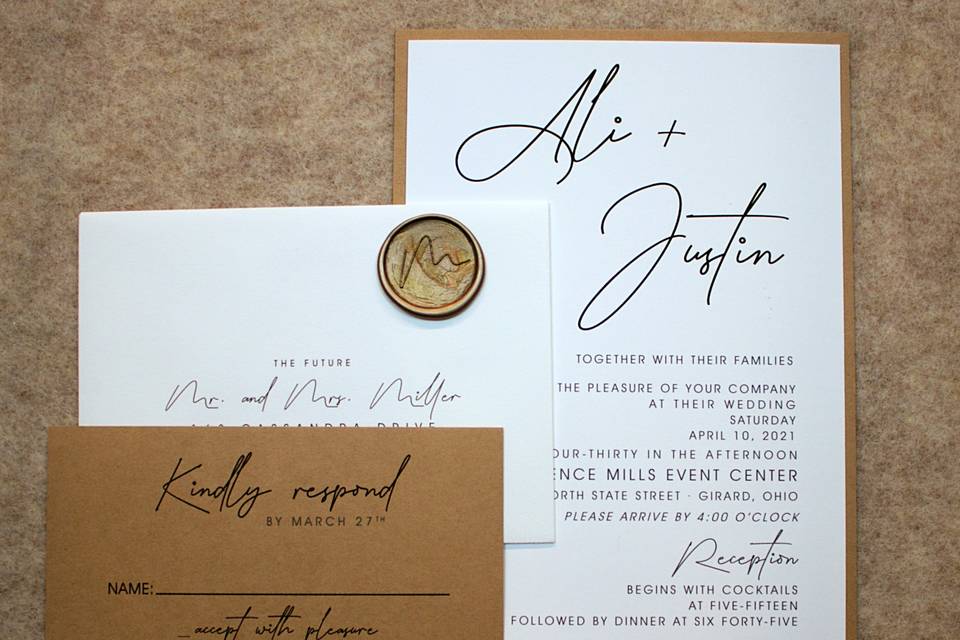 Ali +
Justin
TOGETHER WITH THEIR FAMILIES
THE PLEASURE OF YOUR COMPANY
AT THEIR WEDDING
SATURDAY
APRIL 10, 2021
OUR-THIRTY IN THE AFTERNOON
ENCE MILLS EVENT CENTER
ORTH STATE STREET · GIRARD, OHIO
PLEASE ARRIVE BY 4:00 O'CLOCK
Reception
BEGINS WITH COCKTAILS
AT FIVE-FIFTEEN
FOLLOWED BY DINNER AT SIX FORTY-FIVE
M
THE FUTURE
Mr. and Mrs. Miller
CASSANDRA DRIVE
Kindly respond
BY MARCH 27TH
NAME:
_accept with pleasure